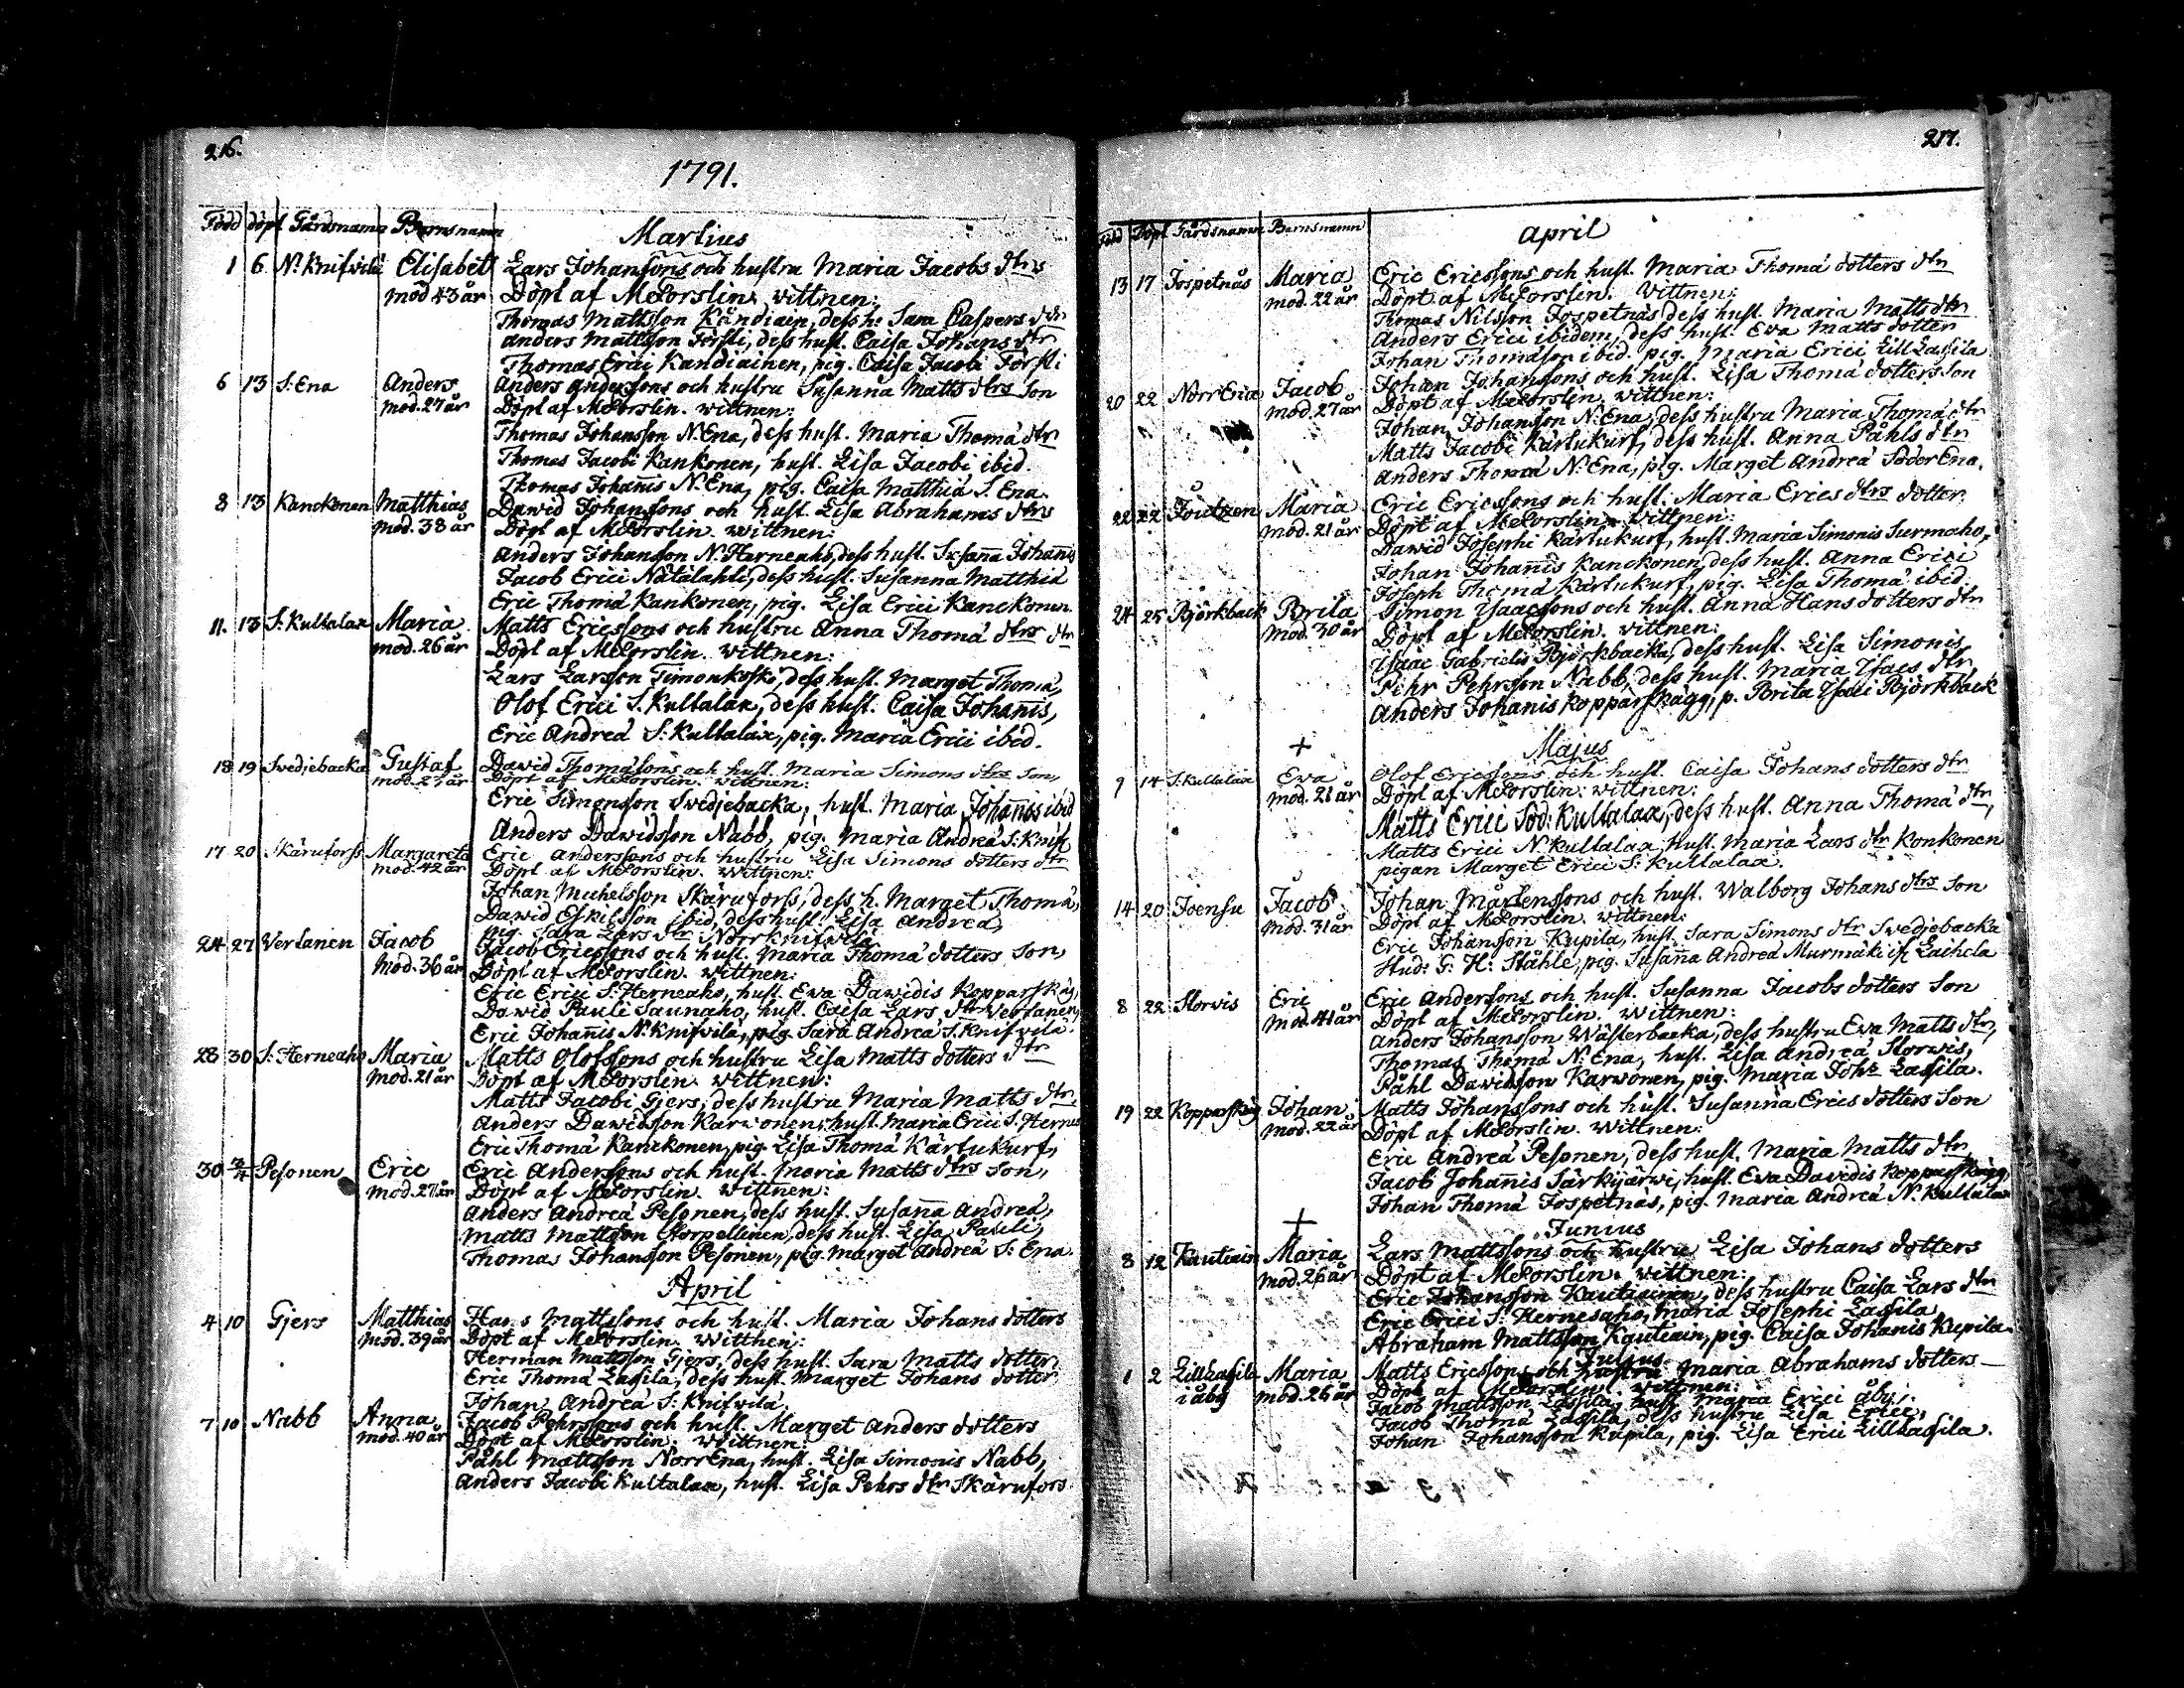 216.
1791.
Född döpt Gårdsnamn Barnsnamn
Martius
1 6 N: Knifvilä Elisabet Lars Johanssons och hustru Maria Jacobs dtrs
mod 43 år Döpt af McForslin. vittnen:
Thomas Mattsson Kandiain, dess h: Sara Caspers dtr
Anders Mattsson Forsti, dess hust. Caisa Johans dtr
Thomas Erici Kandiainen, pig. Caisa Jacobi Forsti
6 13 S: Ena Anders Anders Anderssons och hustru Susanna Matts dtrs son
mod. 27 år Döpt af McForslin. vittnen:
Thomas Johansson N: Ena, dess hust. Maria Thomæ dtr
Thomas Jacobi Kankonen, hust. Lisa Jacobi ibid.
Thomas Johannis N: Ena, pig. Caisa Matthiæ S. Ena.
8 13 Kanckonen Matthias Dawid Johanssons och hust. Lisa Abrahams dtrs
mod. 38 år Döpt af McForslin. vittnen:
Anders Johansson N: Herneaho, dess hust. Susanna Johannis
Jacob Erici Nätälahti, dess hust. Susanna Matthiæ
Eric Thomæ Kankonen, pig. Lisa Erici Kanckonen.
11. 13 S: Kultalax Maria Matts Ericssons och hustru Anna Thomæ dtrs dtr
mod. 26 år Döpt af McForslin. vittnen:
Lars Larsson Timonkoski, dess hust. Marget Thomæ,
Olof Erici S. Kultalax, dess hust. Caisa Johannis,
Eric Andreæ S: Kultalax, pig. Maria Erici ibid.
18 19 Svedjebacka Gustaf Dawid Thomæsons och hust. Maria Simons dtrs son,
mod. 27 år Döpt af McForslin. vittnen:
Eric Simonsson Svedjebacka, hust. Maria Johannis ibid
Anders Dawidsson Nabb, pig. Maria Andreæ S: Knif.
17 20 Skäruforss Margareta Eric Anderssons och hustru Lisa Simons dotters dtr
mod. 42 år Döpt af McForslin. Wittnen:
Johan Michelsson Skäruforss, dess h. Marget Thomæ,
Dawid Eskilsson ibid, dess hust. Lisa Andreæ,
pig. Sara Lars dtr Norr Knifvilä
24 27 Vertanen Jacob Jacob Ericssons och hust. Maria Thomæ dotters son,
mod. 36 år Döpt af McForslin. vittnen:
Eric Erici S: Herneaho, hust. Ewa Dawidis Kopparskäg,
Dawid Pauli Saunaho, hust. Caisa Lars dtr Vertanen,
Eric Johannis N: Knifvilä, pig. Sara Andreæ S. Knifvilä.
28 30 S: Herneaho Maria Matts Olofssons och hustru Lisa Matts dotters dtr
mod. 21 år Döpt af McForslin. vittnen:
Matts Jacobi Gjers, dess hustru Maria Matts dtr,
Anders Dawidsson Karwonen, hust. Maria Erici S: Hernea
Eric Thomæ Kanckonen, pig. Lisa Thomæ Kärtukurf,
30 3/4 Pesonen Eric Eric Anderssons och hust. Maria Matts dtrs son,
mod. 27 år Döpt af McForslin. Wittnen:
Anders Andreæ Pesonen, dess hust. Susanna Andreæ,
Matts Mattsson Storpellinen, dess hust. Lisa Pauli,
Thomas Johansson Pesonen, pig. Marget Andreæ S: Ena.
April
4 10 Gjers Matthias Hans Mattssons och hust. Maria Johans dotters
mod. 39 år Döpt af McForslin. Wittnen:
Herman Mattsson Gjers, dess hust. Sara Matts dotter
Eric Thomæ Lassila, dess hust. Marget Johans dotter
Johan Andreæ S: Knifvilä.
7 10 Nabb Anna Jacob Pehrssons och hust. Marget Anders dotters
mod. 40 år Döpt af McForslin. Wittnen:
Påhl Mattsson NorrEna, hust. Lisa Simonis Nabb,
Anders Jacobi Kultalax, hust. Lisa Pehrs dtr Skärufors
217.
Född Döpt Gårdsnamn Barnsnamn
April
13 17 Jospetnäs Maria Eric Ericssons och hust. Maria Thomæ dotters dtr
mod. 22 år Döpt af McForslin. Vittnen:
Thomas Nilsson Jospetnäs dess hust. Maria Matts dtr
Anders Erici ibidem, dess hust. Eva Matts dotter
Johan Thomæson ibid. pig. Maria Erici LillLassila
20 22 NorrEna Jacob Johan Johanssons och hust. Lisa Thomæ dotters son
mod. 27 år Döpt af McForslin. vittnen:
Johan Johansson N: Ena, dess hustru Maria Thomæ dtr
Matts Jacobi Kärtukurf, dess hust. Anna Påhls dtr
Anders Thomæ N: Ena, pig. Marget Andreæ SöderEna.
22 22 Joutzen Maria Eric Ericssons och hust. Maria Erics dtrs dotter
mod. 21 år Döpt af McForslin. Vittnen:
Dawid Josephi Kartukurf, hust. Maria Simonis Surmaho,
Johan Johannis Kanckonen, dess hust. Anna Erici
Joseph Thomæ Kärtukurf, pig. Lisa Thomæ ibid.
24 25 Björkback Brita Simon Isaacsons och hust. Anna Hans dotters dtr
mod. 30 år Döpt af McForslin. vittnen:
Isaac Gabrielis Björkbacka, dess hust. Lisa Simonis,
Pehr Pehrsson Nabb, dess hust. Maria Isacs dtr,
Anders Johanis Kopparskägg, p. Brita Isaci Björkback
Majus
+
9 14 S. Kultalax Eva Olof Ericssons och hust. Caisa Johans dotters dtr
mod. 28 år Döpt af McForslin. vittnen:
Matts Erici Söd: Kultalax, dess hust. Anna Thomæ dtr,
Matts Erici N. Kultalax, hust. Maria Lars dtr Konkonen
pigan Marget Erici S: Kultalax.
14 20 Joensu Jacob Johan Mårtenssons och hust. Walborg Johans dtrs son
mod. 31 år Döpt af McForslin. vittnen:
Eric Johansson Kupila, hust. Sara Simons dtr Svedjebacka
Stud: G: H: Ståhle, pig. Susanna Andreæ Murmäki if. Laihela
8 22 Storvis Eric Eric Anderssons och hust. Susanna Jacobs dotters son
mod. 41 år Döpt af McForslin. Wittnen:
Anders Johansson Wästerbacka, dess hustru Eva Matts dtr,
Thomas Thomæ N: Ena, hust. Lisa Andreæ Storvis,
Påhl Dawidsson Karwonen, pig. Maria Joh:s Lassila.
19 22 Kopparskäg Johan Matts Johanssons och hust. Susanna Erics dotters son
mod. 22 år Döpt af McForslin. Wittnen:
Eric Andreæ Pesonen, dess hust. Maria Matts dtr,
Jacob Johannis Särkijärwi, hust. Ewa Davidis Kopparskägg,
Johan Thomæ Jospetnäs, pig. Maria Andreæ N: Kultalax
+
Junius
8 12 Kautiain Maria Lars Mattssons och hustru Lisa Johans dotters
mod. 26 år Döpt af McForslin. vittnen:
Eric Johansson Kautiainen, dess hustru Caisa Lars dtr
Eric Erici S: Hernesaho, Maria Josephi Lassila,
Abraham Mattsson Kautiain, pig. Caisa Johanis Kupila.
Julius
1 2 Lillkassila Maria Matts Ericssons och hustru Maria Abrahams dotters
i åby mod. 26 år Döpt af McForslin. vittnen:
Jacob Mattsson Lassila, hust. Maria Erici åby,
Jacob Thomæ Lassila, dess hustru Lisa Erici,
Johan Johansson Kupila, pig. Lisa Erici Lillkassila.